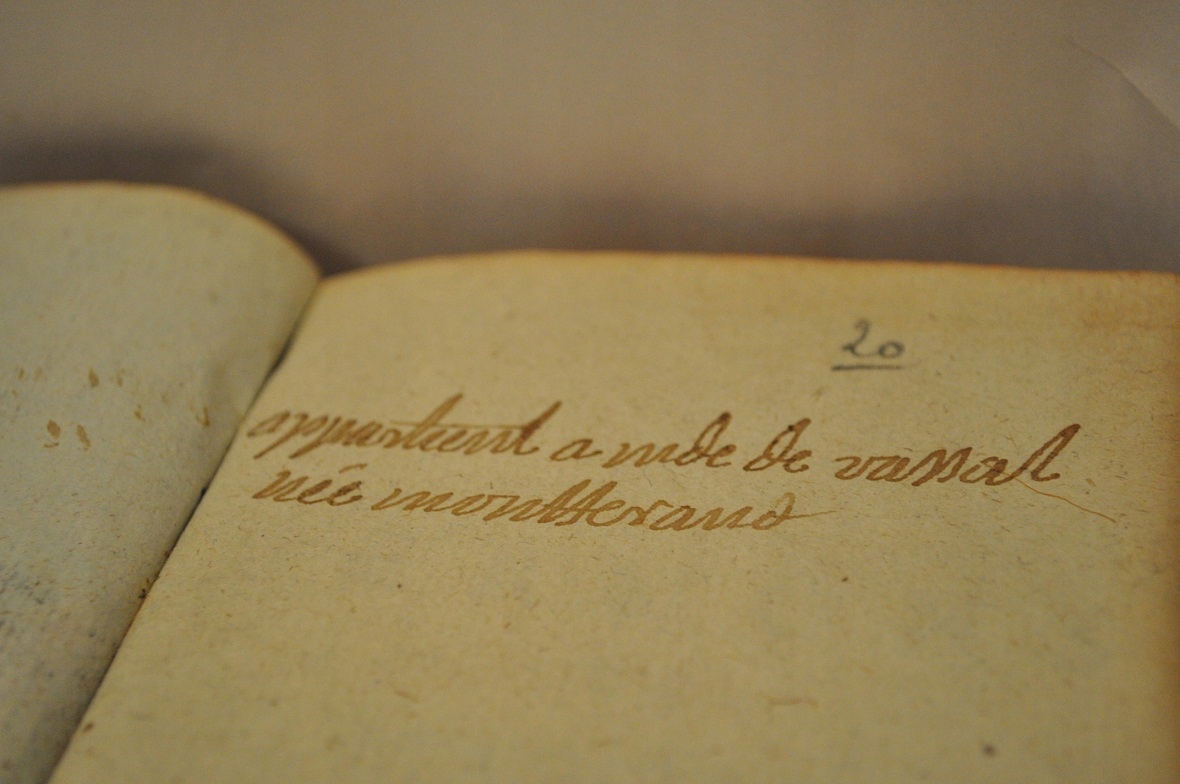 20
appartient a mde de vassal
née montferrand